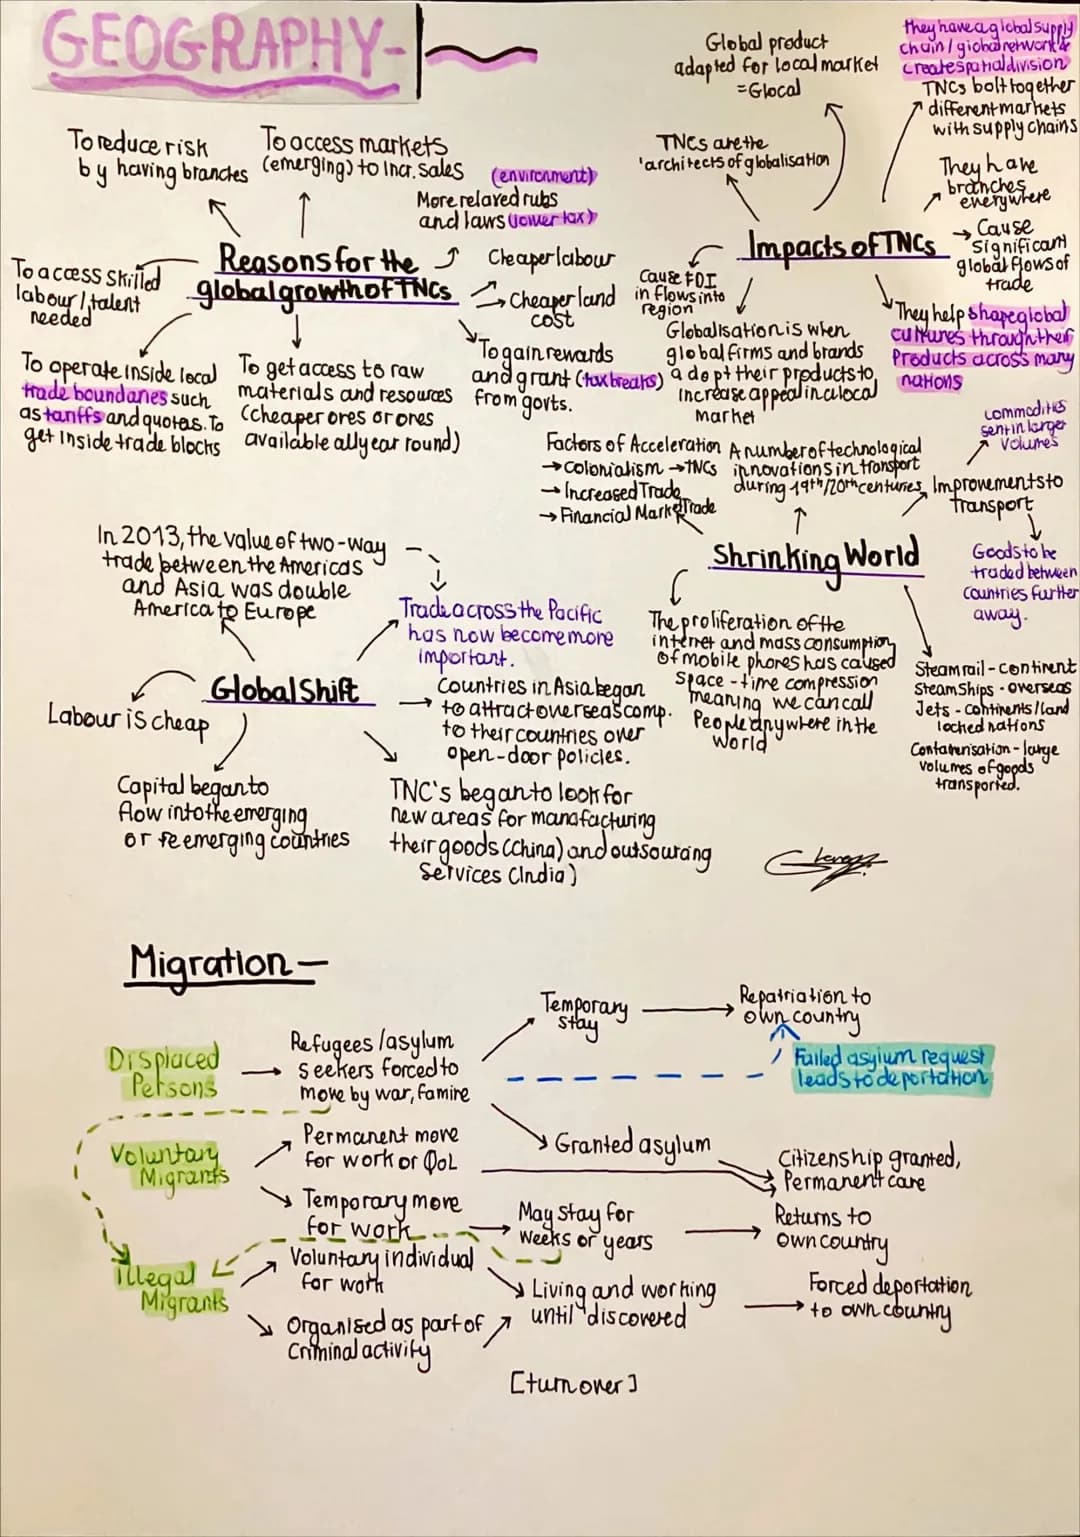 GEOGRAPHY-
To reduce risk
by having branches
To access markets
(emerging) to incr. sales
(environment)
More relaxed rubs
and laws (lower tax)
Reasons for the
global growth of TNCs
To access skilled
labour / talent
needed
Cheaper labour
Cheaper land
cost
To operate inside local
trade boundaries such
as tariffs and quotas. To
get inside trade blocks
To get access to raw
materials and resources
(cheaper ores or ores
available all year round)
To gain rewards
and grant (tax breaks)
from govts.
Global product
adapted for local market
= Glocal
They have a global supply
chain / global network &
create spatial division
TNCs bolt together
different markets
with supply chains
TNCs are the
'architects of globalisation
They have
branches
everywhere
Impacts of TNCs
Cause
Significant
global flows of
trade
Cause FDI
in flows into
region
Globalisation is when
global firms and brands
adopt their products to
increase appeal in a local
market
They help shape global
cultures through their
Products across many
nations
Factors of Acceleration
→ Colonialism → TNCs
→ Increased Trade
→ Financial Market Trade
A number of technological
innovations in transport
during 19th/20th centuries
commodities
sent in larger
volumes
Improvements to
transport
Shrinking World
Goods to be
traded between
countries further
away.
The proliferation of the
internet and mass consumption
of mobile phones has caused
space-time compression
meaning we can call
People anywhere in the
World
Steam rail - continent
Steam Ships - overseas
Jets - continents / land
locked nations
Containerisation - large
volumes of goods
transported.
In 2013, the value of two-way
trade between the Americas
and Asia was double
America to Europe
Trade across the Pacific
has now become more
important.
Global Shift
Labour is cheap
Countries in Asia began
to attract overseas comp.
to their countries over
open-door policies.
Capital began to
flow into the emerging
or re emerging countries
TNC's began to look for
new areas for manafacturing
their goods (China) and outsourcing
Services (India)
Migration -
Displaced
Persons
Refugees / asylum
seekers forced to
move by war, famine
Temporary
stay
Repatriation to
own country
Failed asylum request
leads to deportation
Granted asylum
Citizenship granted,
Permanent care
Voluntary
Migrants
Permanent move
for work or QoL
Temporary move
for work
May stay for
weeks or years
Returns to
own country
Illegal
Migrants
Voluntary individual
for work
Organised as part of
Criminal activity
Living and working
until discovered
Forced deportation
to own country
[turn over]